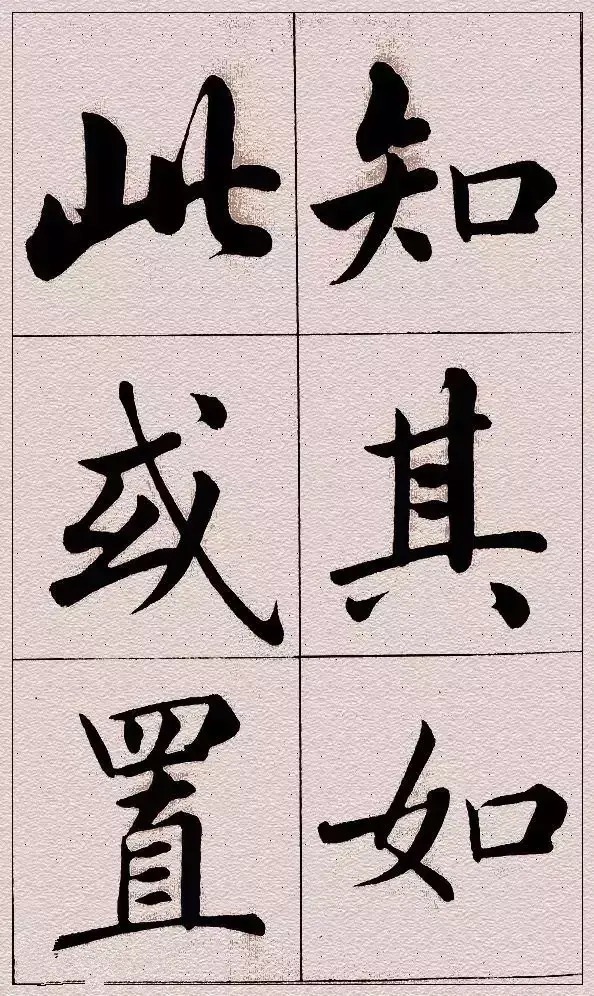 知其如
此或置